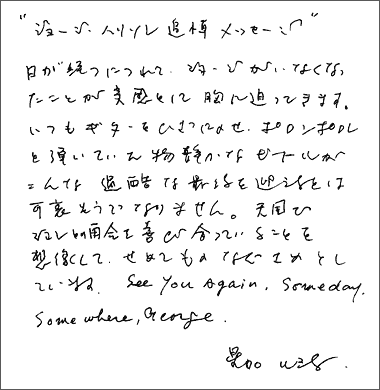 "ジョージ・ハリソン追悼メッセージ"
日が経つにつれて、ジョージがいなくなっ
たことが実感として胸に迫ってきます。
いつもギターをひざにのせ、ポロンポロン
と弾いていた物静かなビートルが
こんな過酷な最後を迎えるとは
可哀そうでなりません。天国で
ジョンと再会を喜び合っていることを
想像して、せめてものなぐさめとし
ていますね。 See You Again, Someday,
Somewhere, George.